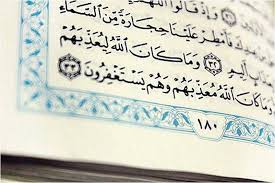 وَإِذْ قَالُوا۟ ٱللَّهُمَّ
فَأَمْطِرْ عَلَيْنَا حِجَارَةً مِّنَ ٱلسَّمَآءِ
أَلِيمٍ ٣٢ وَمَا كَانَ ٱللَّهُ لِيُعَذِّبَهُمْ
وَمَا كَانَ ٱللَّهُ مُعَذِّبَهُمْ وَهُمْ يَسْتَغْفِرُونَ ٣٣
١٨٠